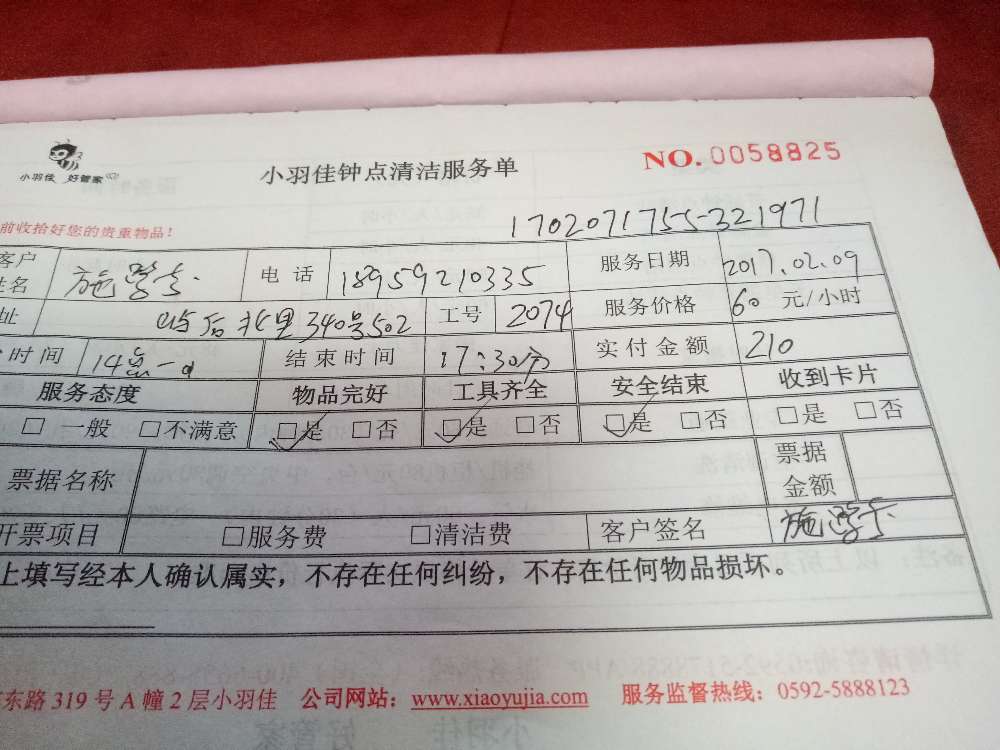 小羽佳 好管家
小羽佳钟点清洁服务单
NO.0058825
前收拾好您的贵重物品!
1702071755-321971
客户姓名 施 电话 18959210335 服务日期 2017.02.09
址 后北里340号502 工号 2074 服务价格 60 元/小时
时间 14点 结束时间 17:30分 实付金额 210
服务态度 物品完好 工具齐全 安全结束 收到卡片
□ 一般 □不满意 □是 □否 □是 □否 □是 □否 □是 □否
票据名称 票据金额
开票项目 □服务费 □清洁费 客户签名 施
上填写经本人确认属实，不存在任何纠纷，不存在任何物品损坏。
东路 319 号 A 幢 2 层小羽佳 公司网站：www.xiaoyujia.com 服务监督热线：0592-5888123